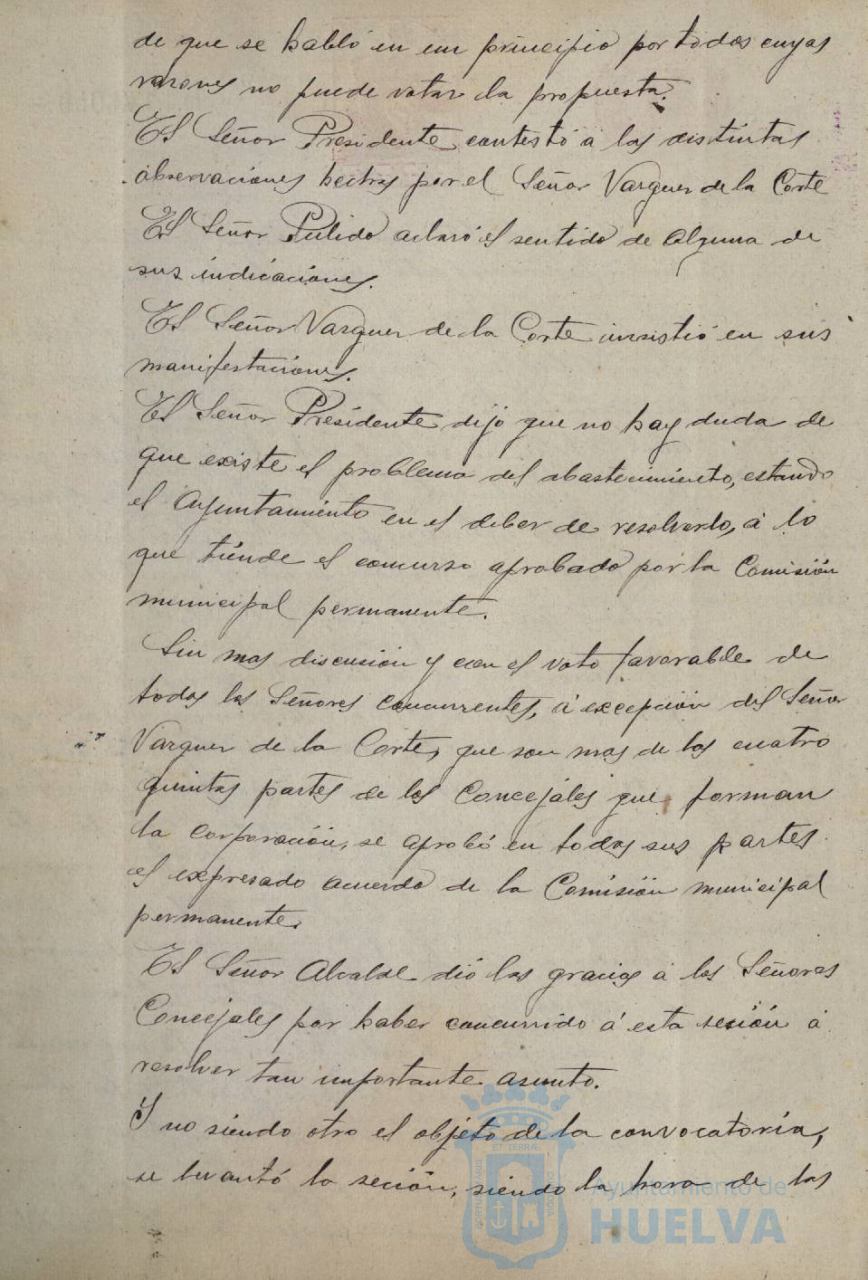 de que se habló en un principio por todas cuyas
razones no puede votar la propuesta.
El Señor Presidente contestó á las distintas
observaciones hechas por el Señor Vazquez de la Corte
El Señor Pulido aclaró el sentido de alguna de
sus indicaciones.
El Señor Vazquez de la Corte insistió en sus
manifestaciones.
El Señor Presidente dijo que no hay duda de
que existe el problema del abastecimiento, estando
el Ayuntamiento en el deber de resolverlo, á lo
que tiende el concurso aprobado por la Comisión
municipal permanente.
Sin mas discusión y con el voto favorable de
todos los Señores concurrentes, á excepción del Señor
Vazquez de la Corte, que son mas de las cuatro
quintas partes de los Concejales que forman
la corporación, se aprobó en todas sus partes
el expresado acuerdo de la Comisión municipal
permanente.
El Señor Alcalde dió las gracias á los Señores
Concejales por haber concurrido á esta sesión á
resolver tan importante asunto.
Y no siendo otro el objeto de la convocatoria,
se levantó la seción, siendo la hora de las
Ayuntamiento de
HUELVA